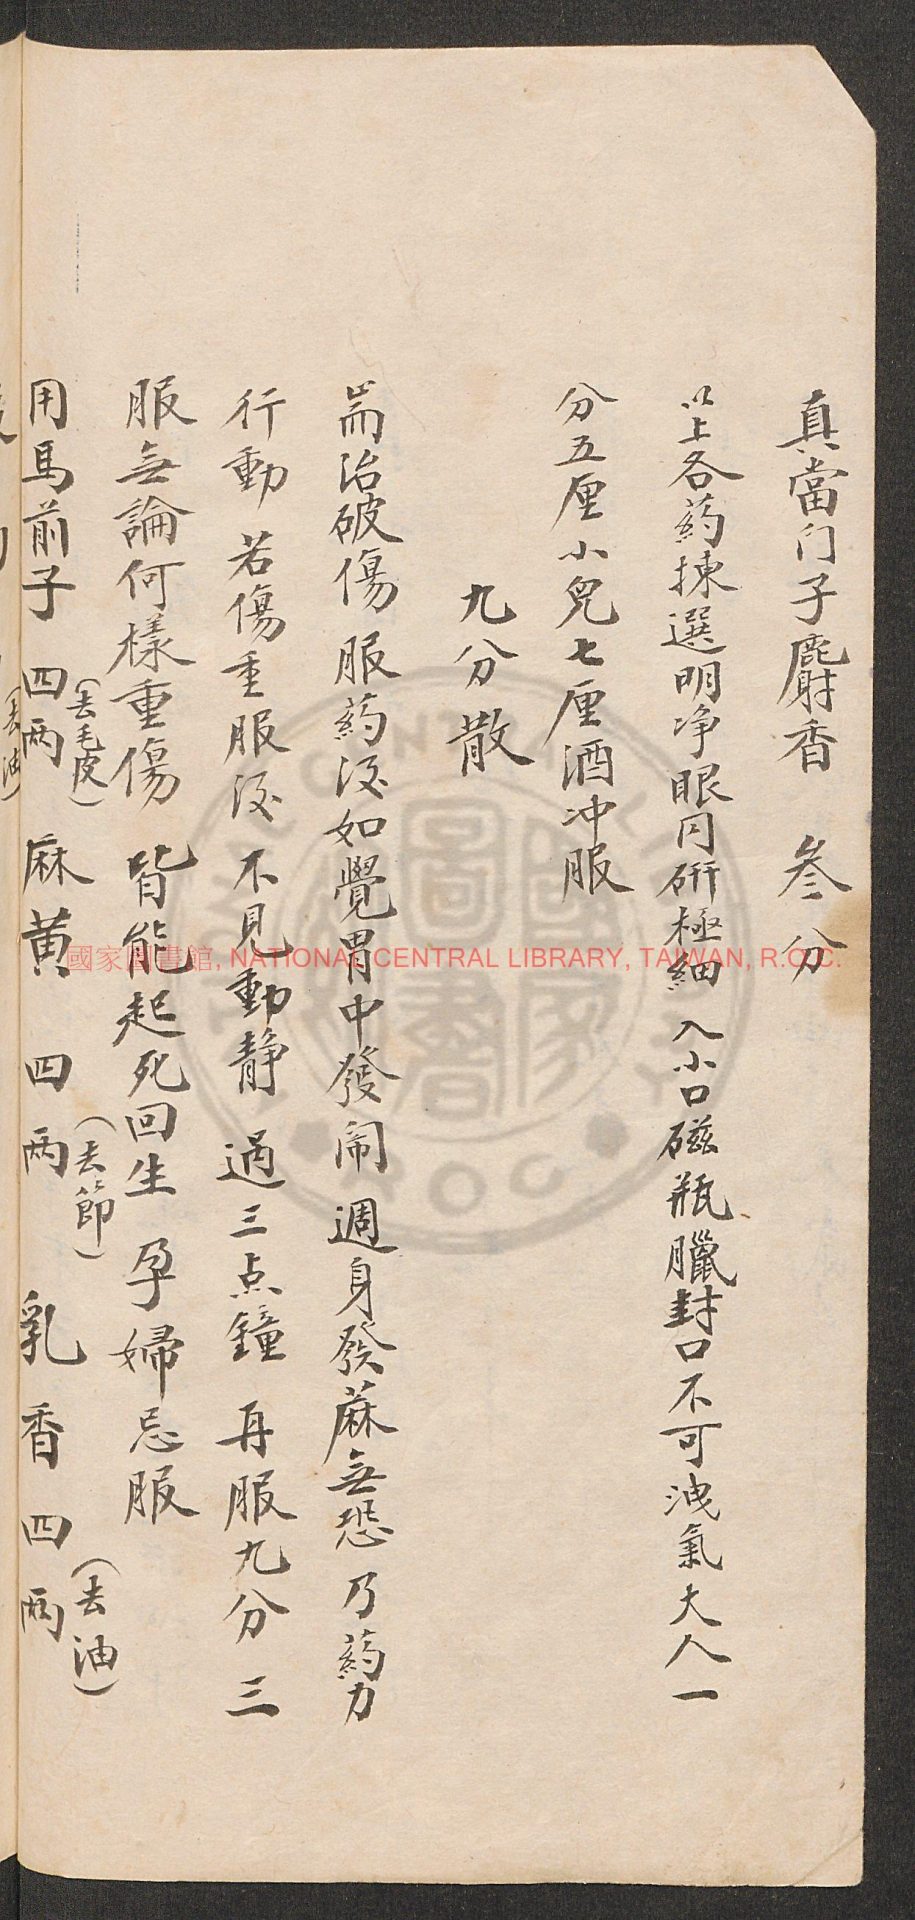 真當门子麝香 叁分
以上各药揀選明净眼同研極細入小口磁瓶臘封口不可洩氣大人一
分五厘小兒七厘酒冲服
九分散
耑治破傷服药後如覺胃中發闹週身發蔴無恐乃药力
行動若傷重服後不見動静過三点鐘再服九分三
服無論何樣重傷皆能起死回生孕婦忌服
用馬前子四两(去毛皮)麻黄四两(去節)乳香四两(去油)
(去油)
國家圖書館, NATIONAL CENTRAL LIBRARY, TAIWAN, R.O.C.